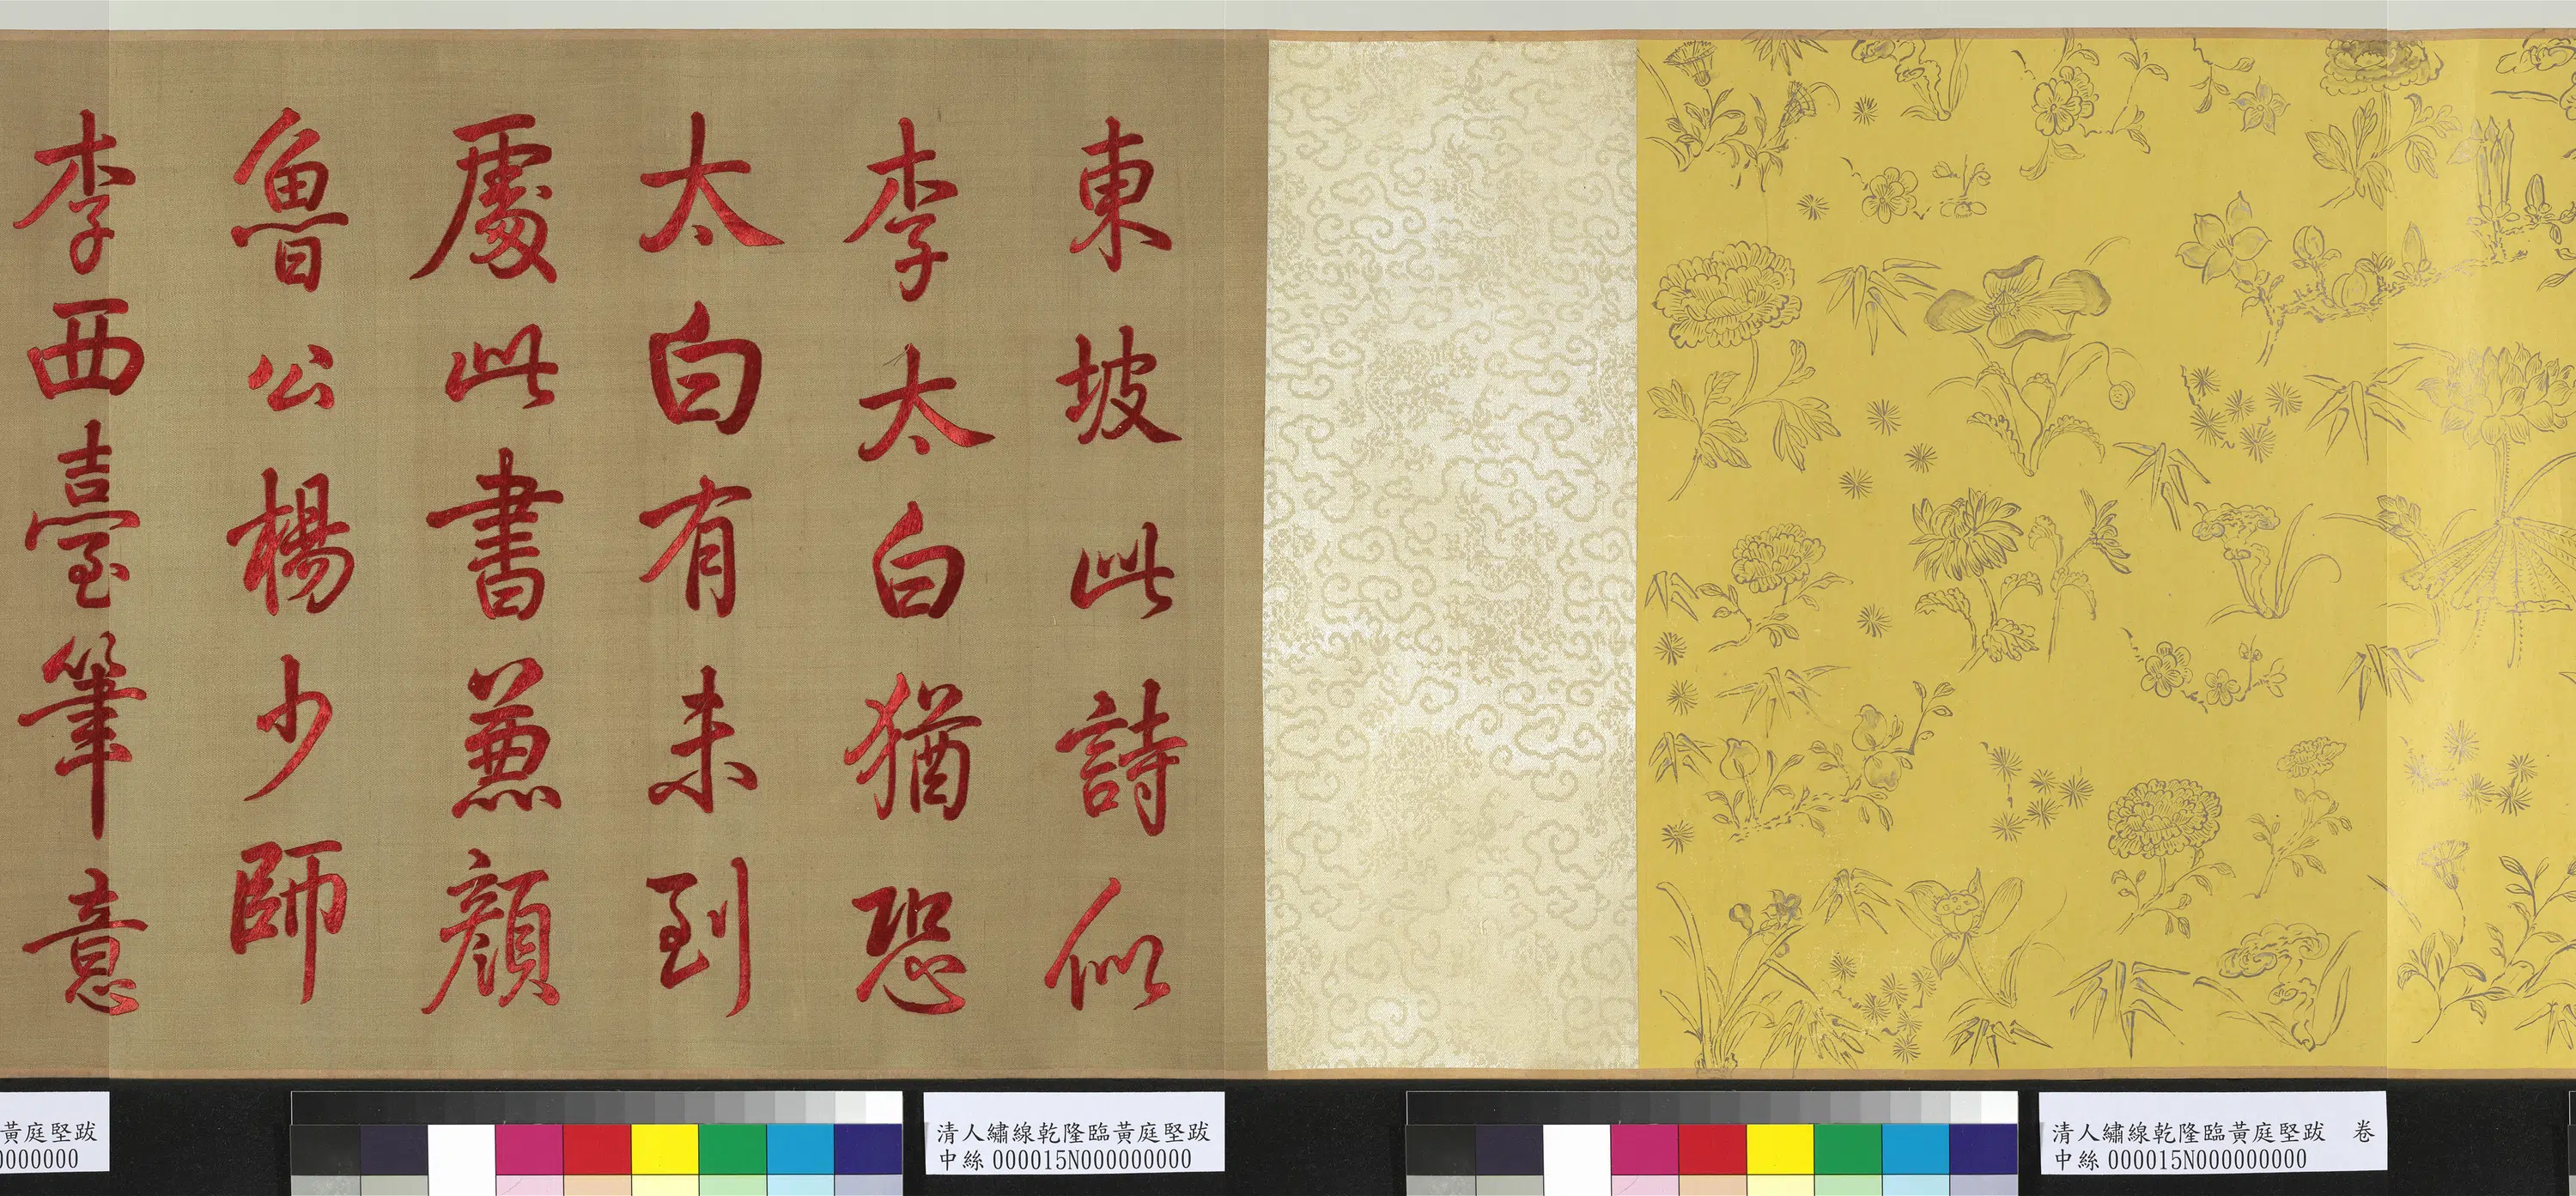 東坡此詩似
李太白猶恐
太白有未到
處此書兼顏
魯公楊少師
李西臺筆意
黃庭堅跋
0000000
清人繡線乾隆臨黃庭堅跋
中絲000015N000000000
清人繡線乾隆臨黃庭堅跋 卷
中絲000015N000000000